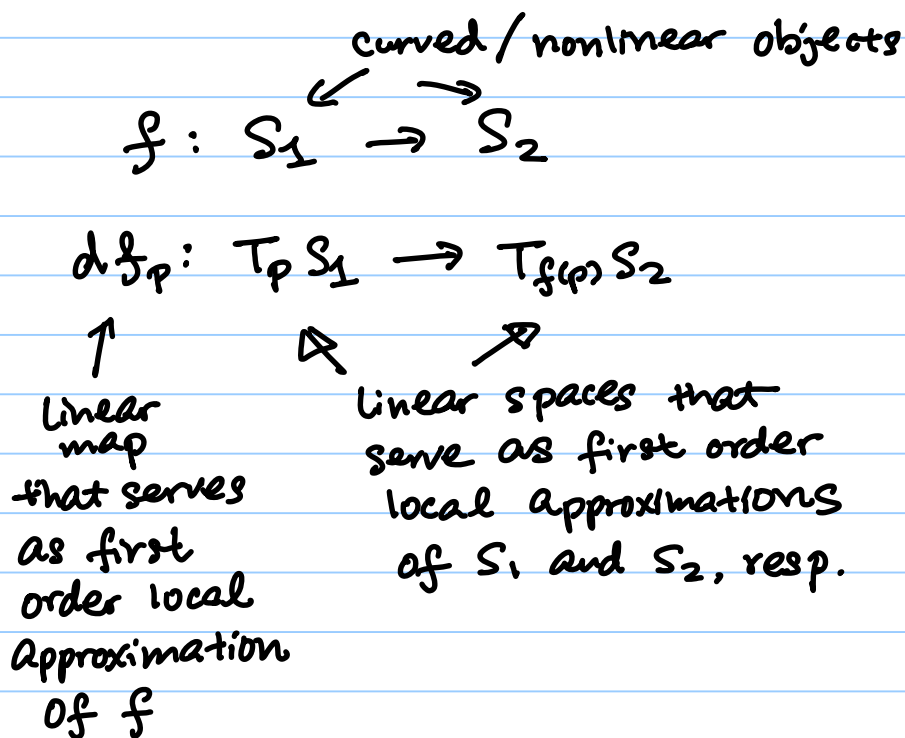 curved/nonlinear objects
f: S₁ → S₂
df_p: T_p S₁ → T_{f(p)} S₂
linear
map
that serves
as first
order local
approximation
of f
linear spaces that
serve as first order
local approximations
of S₁ and S₂, resp.